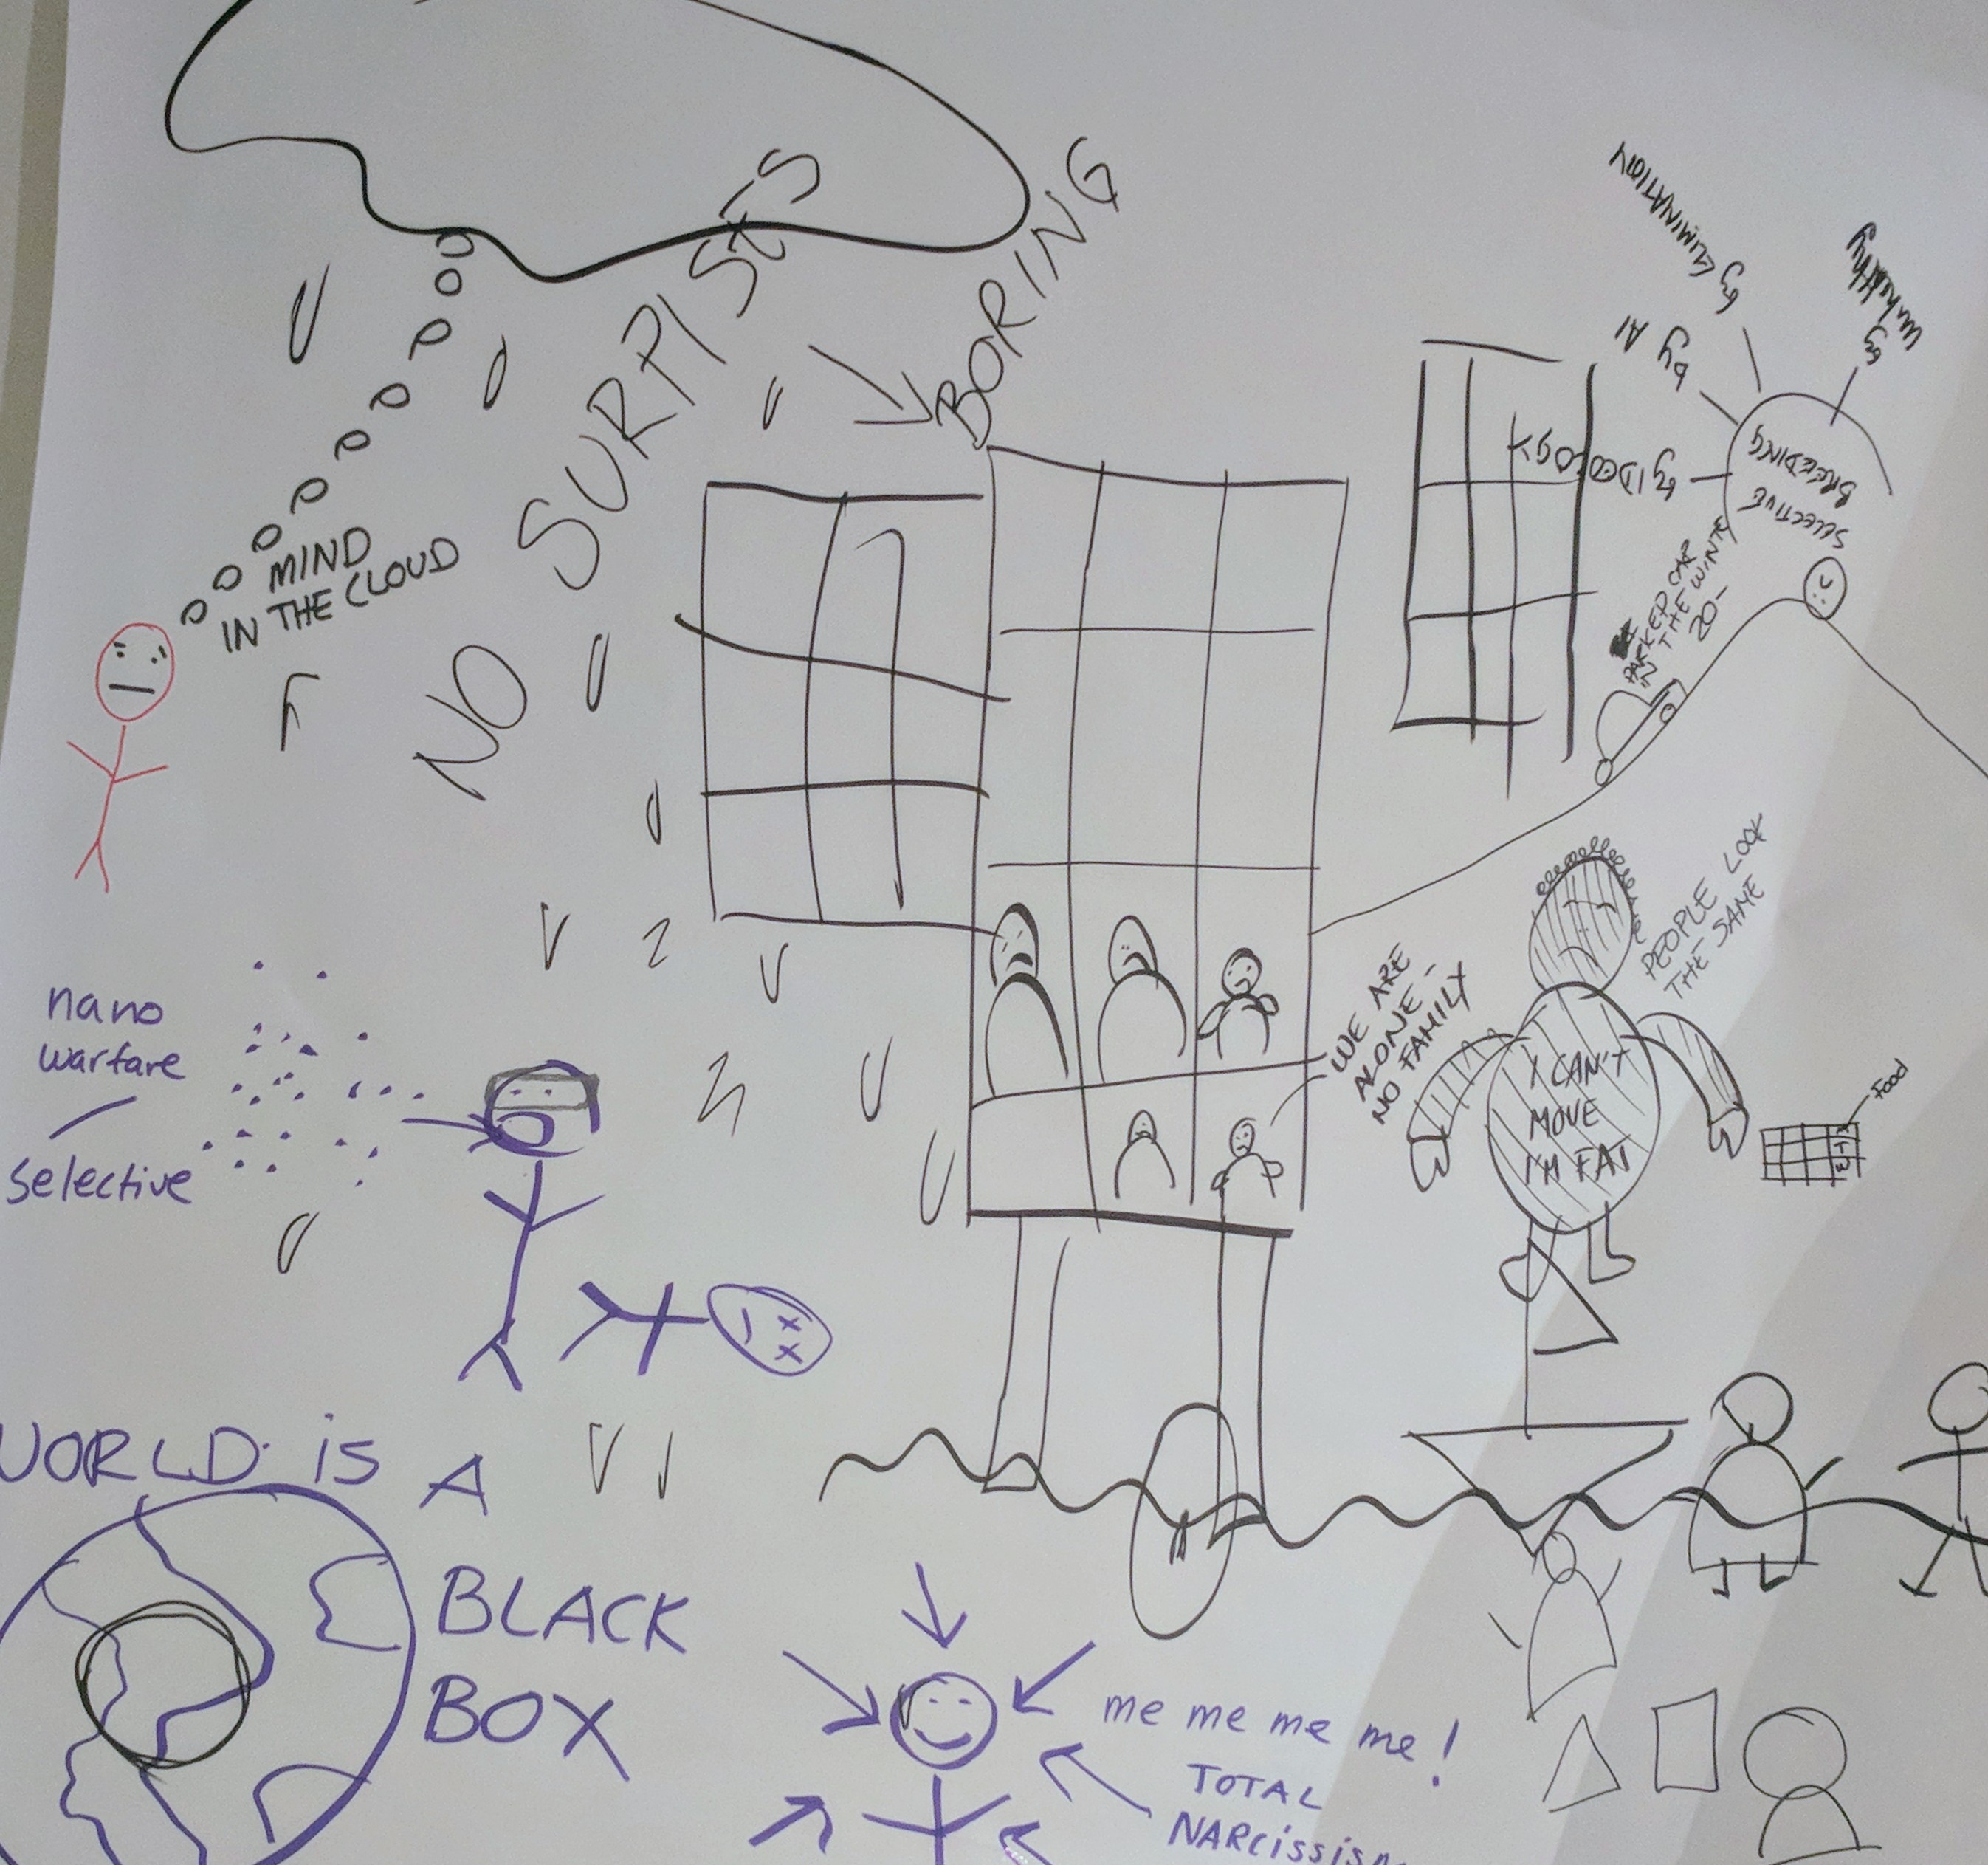 MIND
IN THE CLOUD
NO SURPISES
BORING
by ELIMINATION
by wealthy
by AI
by IDEOLOGY
SELECTIVE
BREEDING
PARKED CAR
THE WINTR
20-
PEOPLE LOOK
THE SAME
WE ARE
ALONE -
NO FAMILY
I CAN'T
MOVE
I'M FAT
FOOD
nano
warfare
selective
WORLD IS A
BLACK
BOX
me me me me!
TOTAL
NARcissism